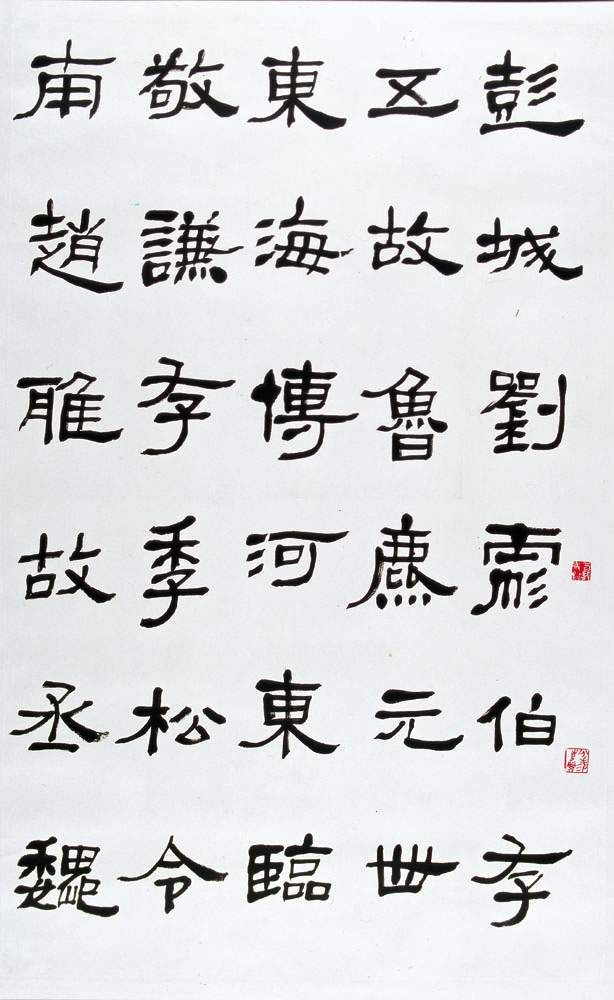 彭城劉伯存
五故魯麃元世
東海博河東臨
敬謙存季松令
南趙雅故丞魏